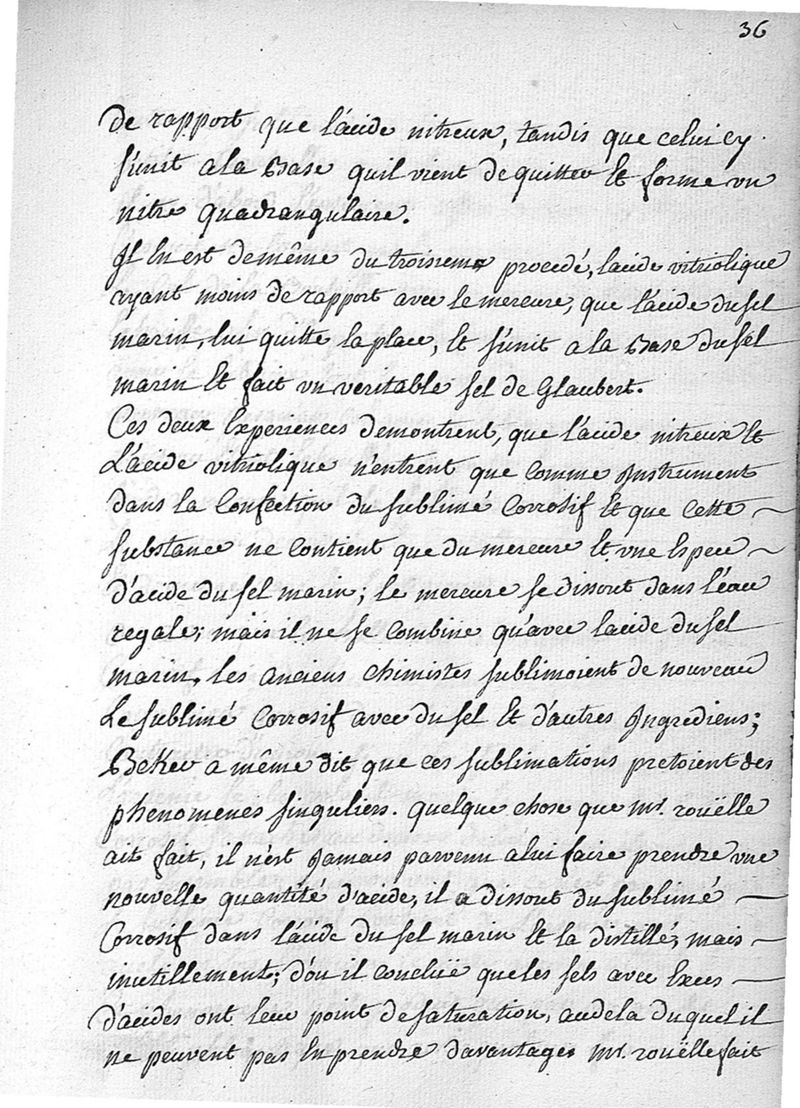 36
De rapport que l'acide nitreux, tandis que celui cy
s'unit a la Base quil vient de quitter et forme un
nitre quadrangulaire.
Il En est de même du troisieme procedé, lacide vitriolique
ayant moins de rapport avec le mercure, que l'acide du sel
marin, lui quitte la place, et s'unit a la Base du sel
marin et fait un veritable sel de Glaubert.
Ces deux Experiences demontrent, que l'acide nitreux et
L'acide vitriolique n'entrent que comme Instrument
dans la Confection du sublimé Corrosif et que cette
substance ne contient que du mercure et une Espece
d'acide du sel marin; le mercure se dissout dans l'eau
regale; mais il ne se combine qu'avec lacide du sel
marin, les anciens chimistes sublimoient de nouveau
Le sublimé Corrosif avec du sel et d'autres Ingrediens;
Beker a même dit que ces sublimations pretoient des
phenomenes singuliers. quelque chose que mr. rouëlle
ait fait, il n'est Jamais parvenu a lui faire prendre une
nouvelle quantité d'acide, il a dissout du sublimé
Corrosif dans l'acide du sel marin et la distillé, mais
inutillement; d'ou il concluë que les sels avec Exces
d'acides ont leur point de saturation, au dela du quel il
ne peuvent pas En prendre davantage. mr. rouëlle fait